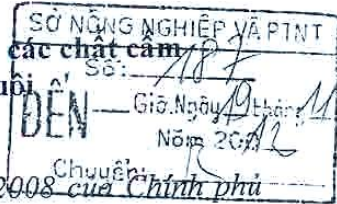 SỞ NÔNG NGHIỆP VÀ PTNT
các chất cấm
Số: 187
ĐẾN Giờ. Ngày 19 tháng 11
Năm 2012
Chuyển:
2008 của Chính phủ